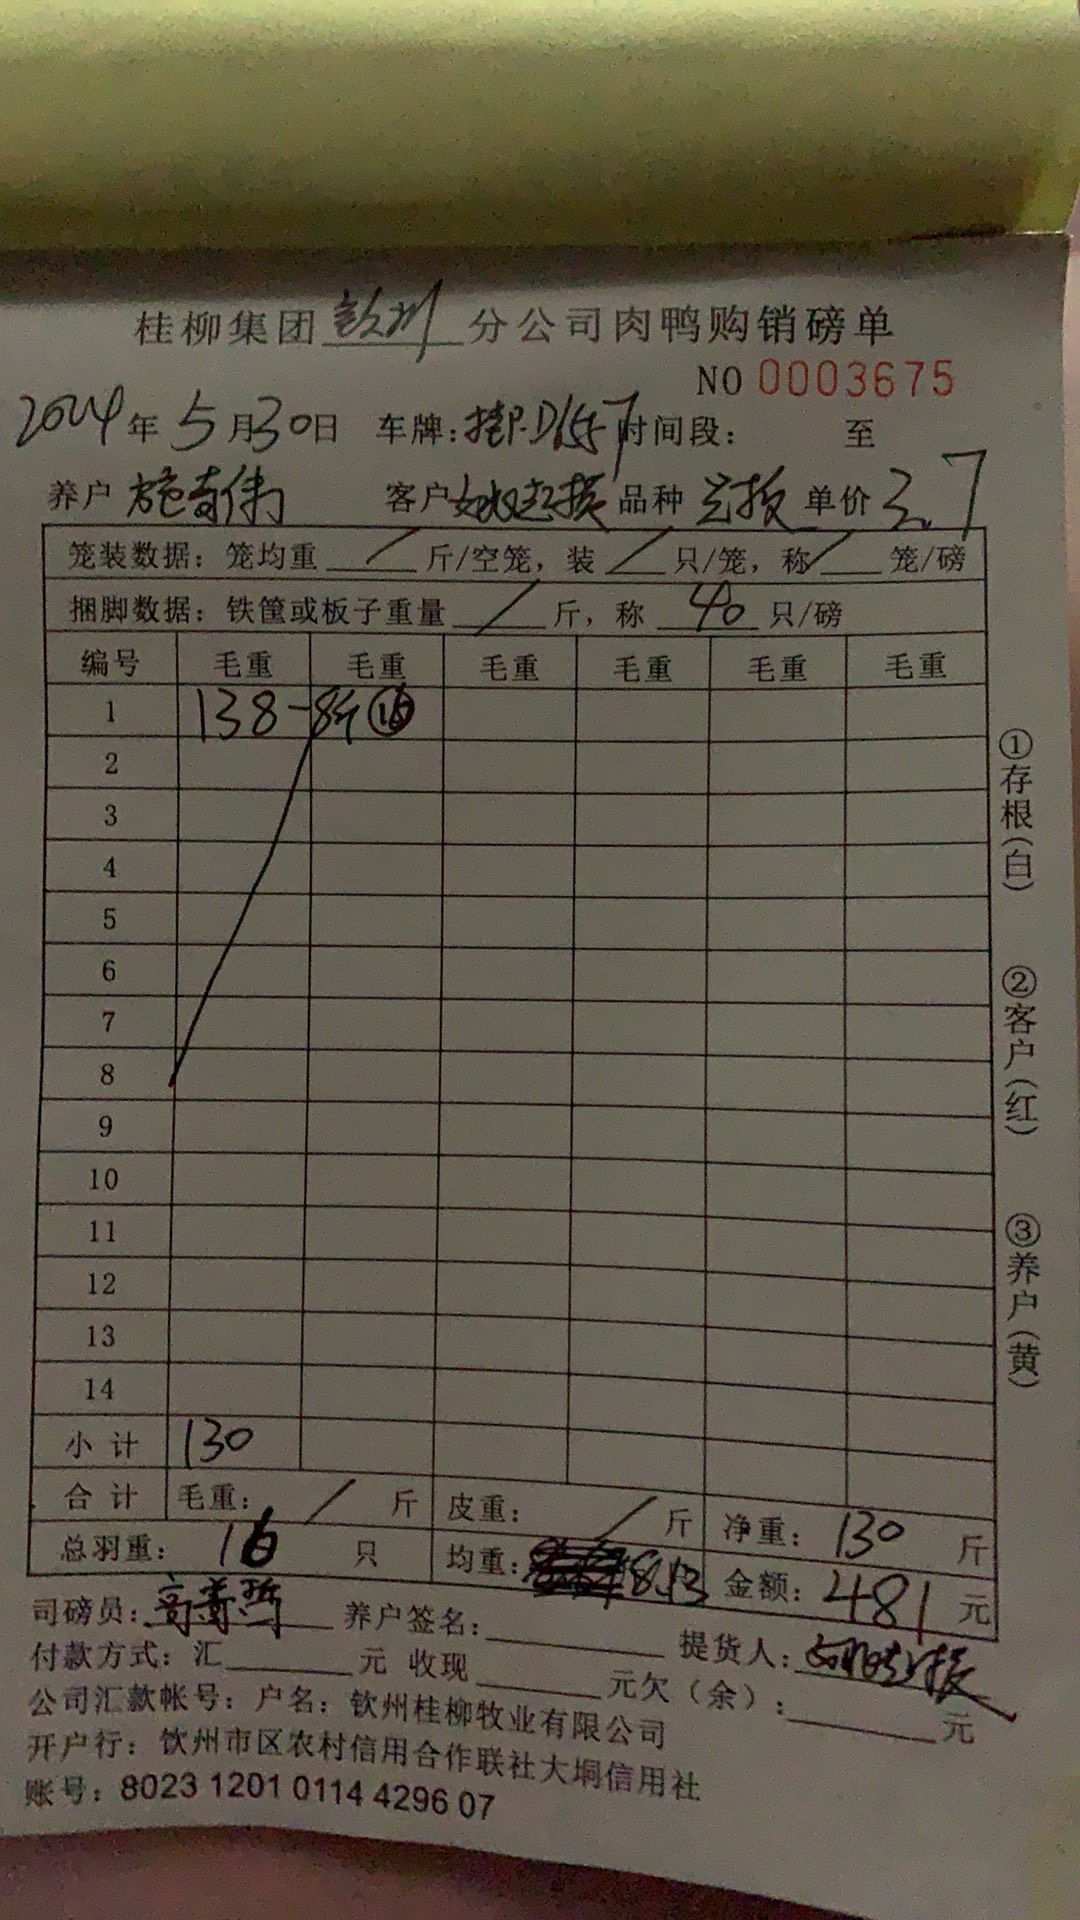 桂柳集团钦州分公司肉鸭购销磅单
NO 0003675
2024年5月30日 车牌: 时间段: 至
养户 施奇伟 客户 品种 单价 3.7
笼装数据: 笼均重 / 斤/空笼, 装 / 只/笼, 称 / 笼/磅
捆脚数据: 铁筐或板子重量 / 斤, 称 40 只/磅
编号 毛重 毛重 毛重 毛重 毛重 毛重
1 138-8斤 ⑯
2
3
4
5
6
7
8
9
10
11
12
13
14
小计 130
合计 毛重: / 斤 皮重: / 斤 净重: 130 斤
总羽重: 16 只 均重: 8.13 金额: 481 元
司磅员: 养户签名: 提货人:
付款方式: 汇 元 收现 元欠(余): 元
公司汇款帐号: 户名: 钦州桂柳牧业有限公司
开户行: 钦州市区农村信用合作联社大垌信用社
账号: 8023 1201 0114 4296 07
①存根(白)
②客户(红)
③养户(黄)